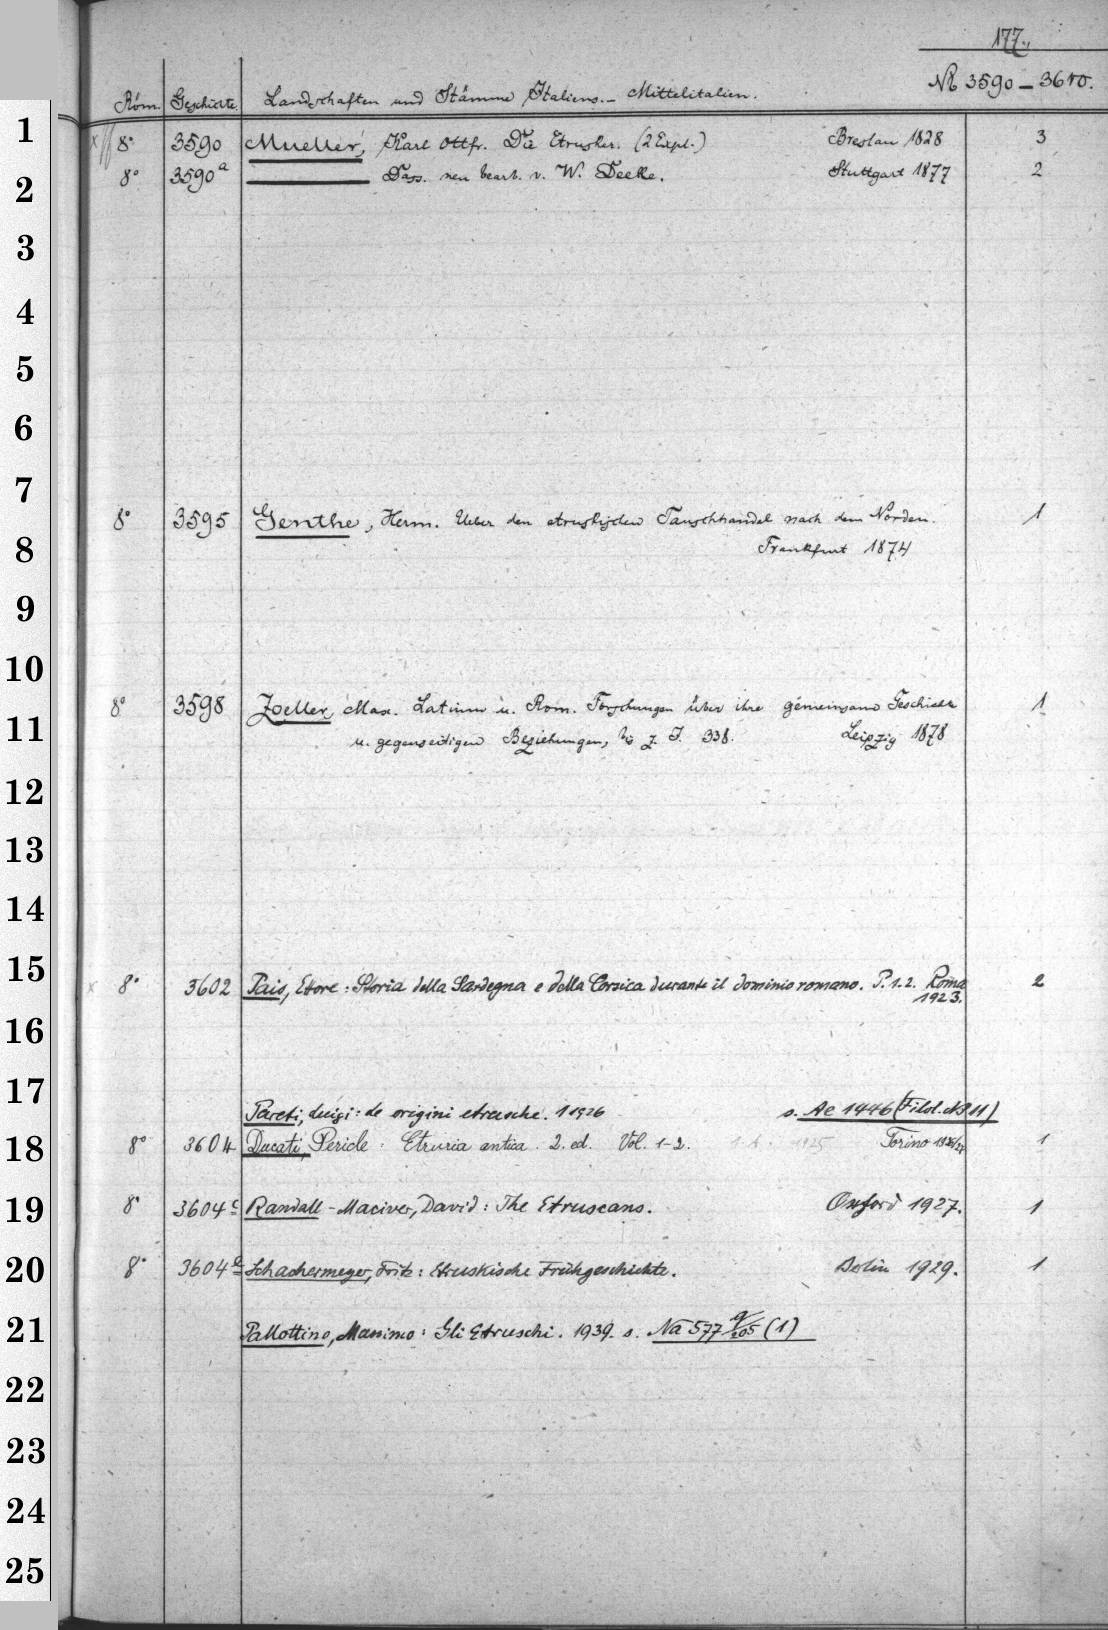 177.
Röm. Geschichte. Landschaften und Stämme Italiens. - Mittelitalien. № 3590 - 3610.
1 8° 3590 Mueller, Karl Ottfr. Die Etrusker. (2 Expl.) Breslau 1828 3
2 8° 3590a ——— Dass. neu bearb. v. W. Deecke. Stuttgart 1877 2
3
4
5
6
7
8° 3595 Genthe, Herm. Ueber den etruskischen Tauschhandel nach dem Norden. 1
8 Frankfurt 1874
9
10
8° 3598 Zoeller, Max. Latium u. Rom. Forschungen über ihre gemeinsame Geschichte 1
11 u. gegenseitigen Beziehungen, bis z. J. 338. Leipzig 1878
12
13
14
15 8° 3602 Pais, Ettore: Storia della Sardegna e della Corsica durante il dominio romano. P. 1.2. Roma 2
1923.
16
17
Pareti, Luigi: Le origini etrusche. 1 1926 s. Ae 1446 (Filol. NB 11)
18 8° 3604 Ducati, Pericle: Etruria antica. 2. ed. Vol. 1-2. 1925 Torino 1
19 8° 3604c Randall-Maciver, David: The Etruscans. Oxford 1927. 1
20 8° 3604e Schachermeyer, Fritz: Etruskische Frühgeschichte. Berlin 1929. 1
21 Pallottino, Massimo: Gli Etruschi. 1939. s. Na 577 9/205 (1)
22
23
24
25